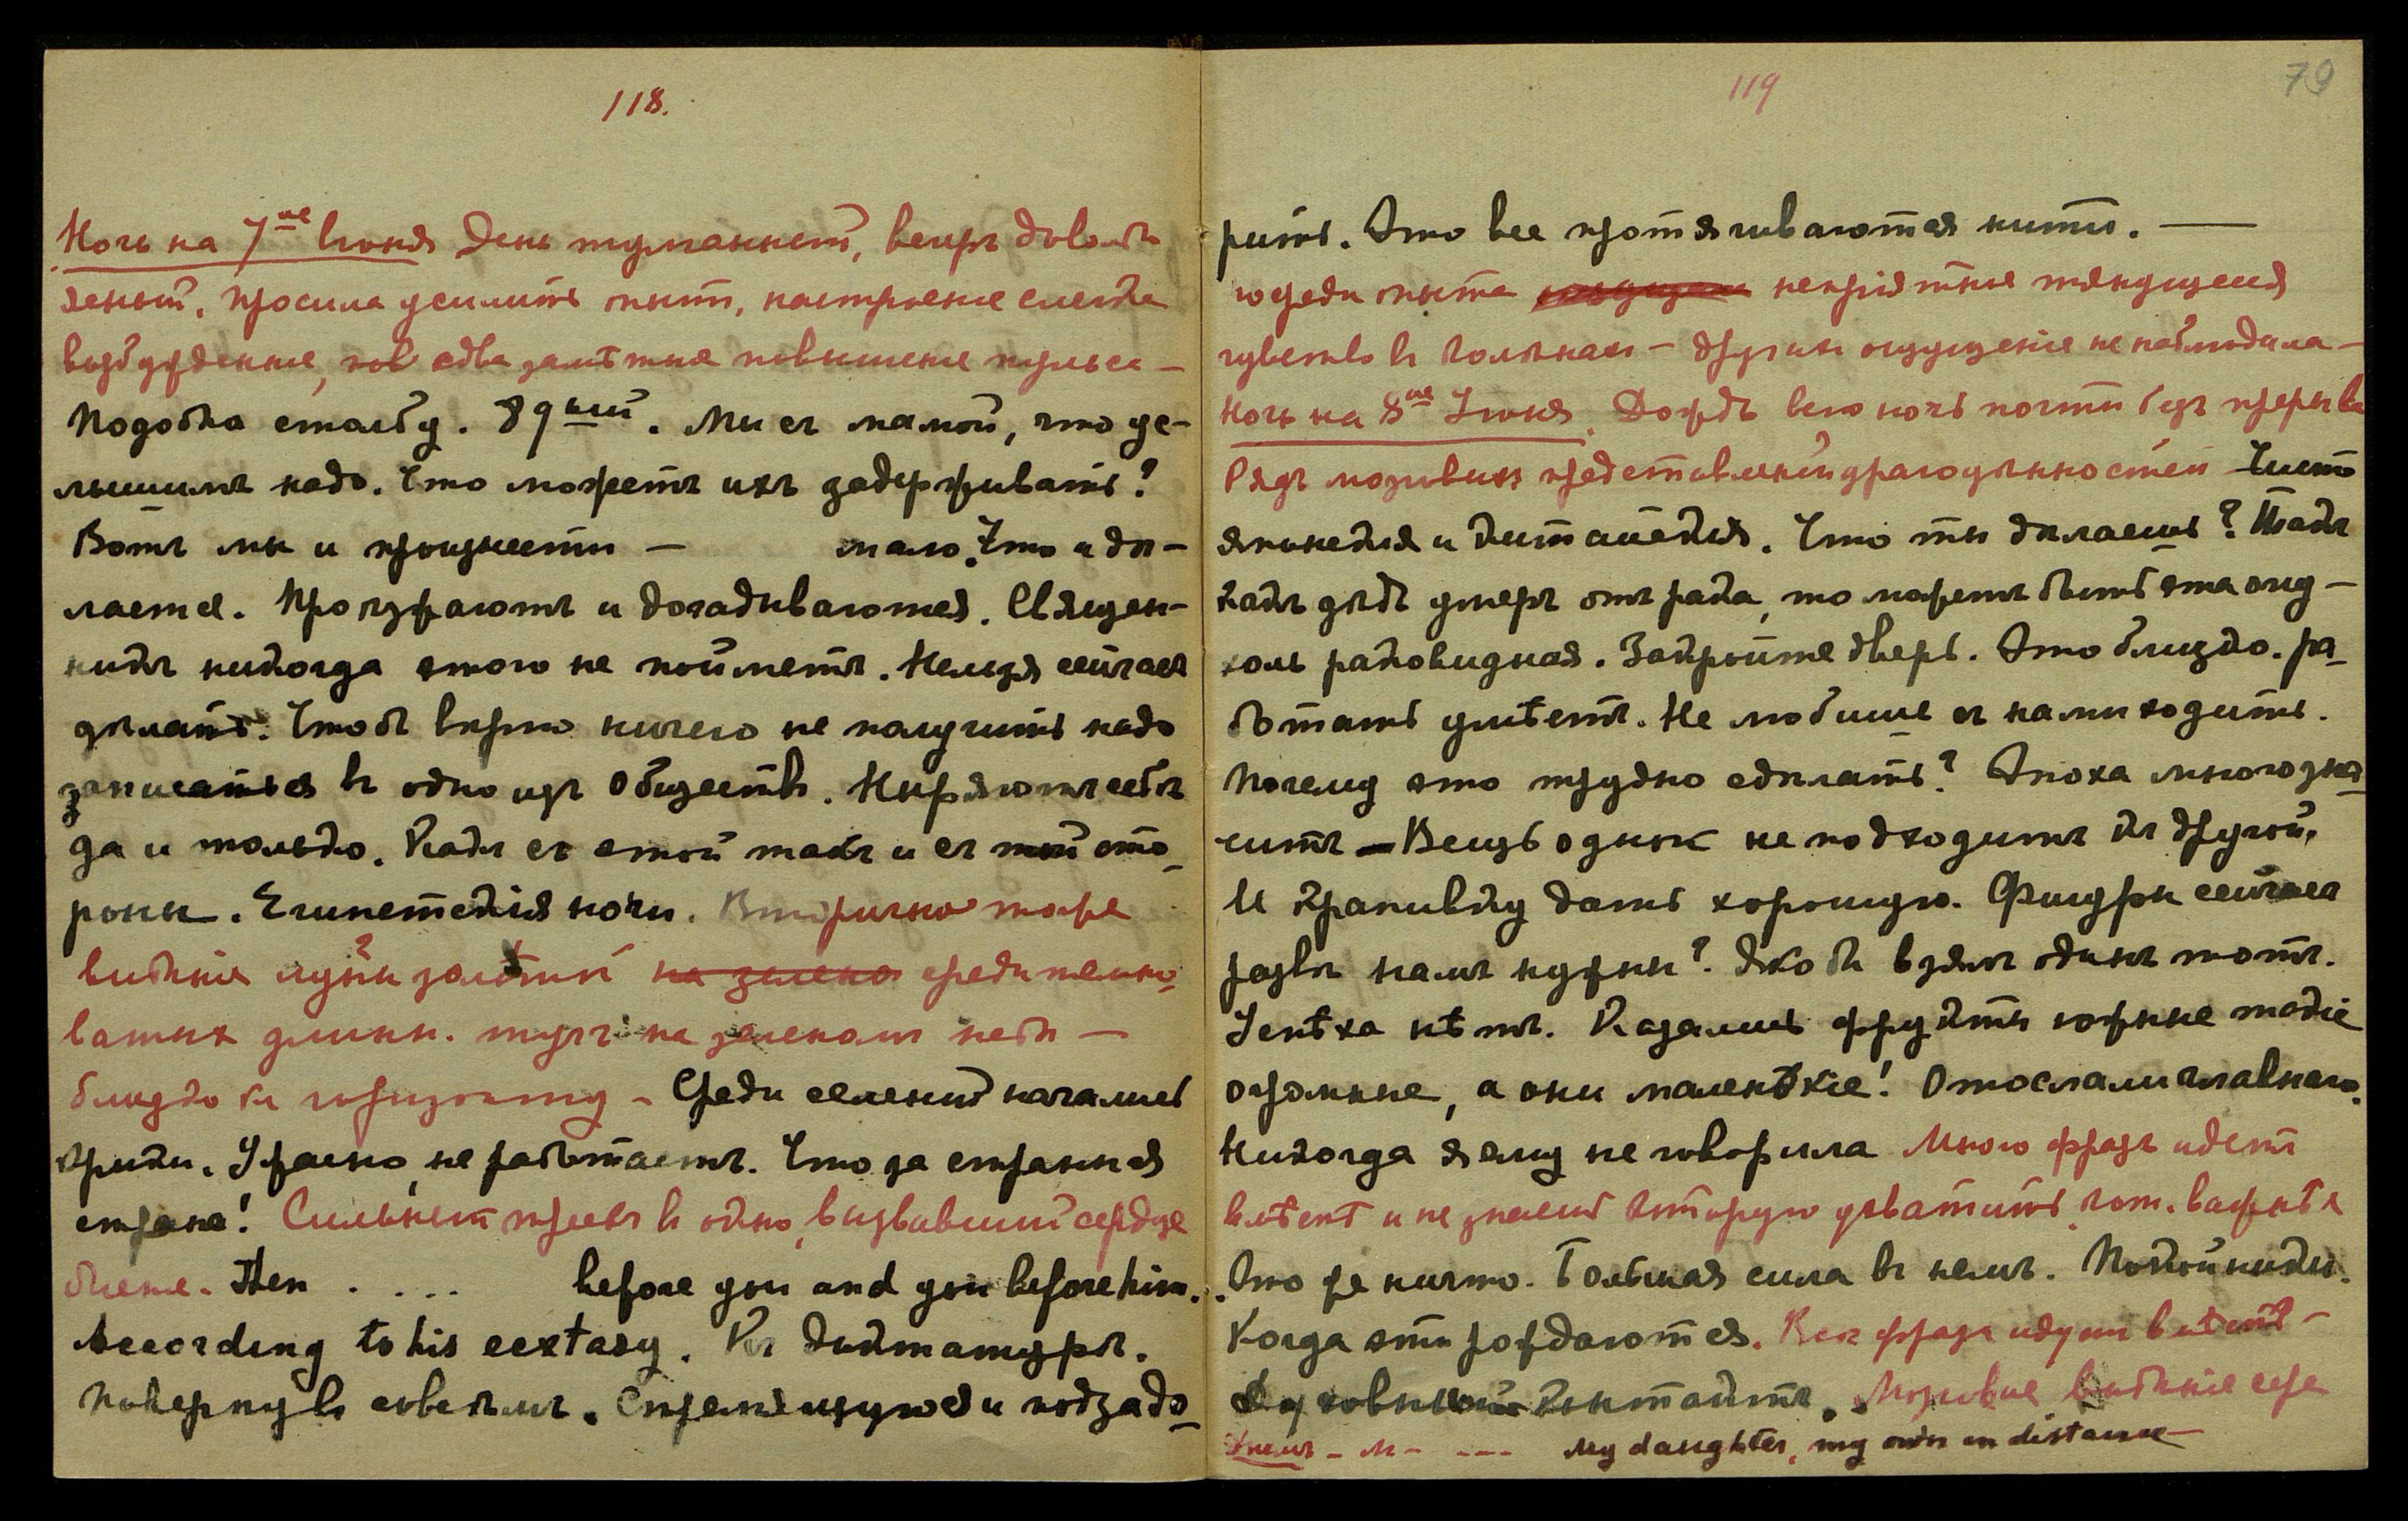 118.
Ночь на 7ое Іюня День туманный, вечеръ довольно
ясный. Просила усилить опытъ, настроеніе слегка
возбужденное, едва замѣтное повышеніе пульса —
Подобна столбу. 89ый. Мы съ мамой, что ус-
лышимъ надо. Что можетъ ихъ задерживать?
Вотъ мы и процвести — мало. Что и дѣ-
лается. Проѣзжаютъ и догадываются. Священ-
никъ никогда этого не пойметъ. Нельзя сейчасъ
дѣлать. Чтобъ вѣрно ничего не получить надо
записаться въ одно изъ Обществъ. Ныряютъ себѣ
да и только. Какъ съ этой такъ и съ той сто-
роны. Египетскія ночи. Вторично тоже
видѣніе луны золотой на зелено среди темно-
ватыхъ длинн. тучъ на зеленомъ небѣ —
близко къ горизонту – Среди селеній начались
крики. Ужасно, не работаетъ. Что за странная
страна! Сильный трескъ въ окно, вызвавшій сердце
біеніе. Then . . . . before you and you before him.
According to his ecxtasy. Къ диктатурѣ.
Подзадо-
119
79
рить. Это все протягиваются нити. —
Посреди опыта непріятное тянущееся
чувство въ голенахъ – другихъ ощущеніе не наблюдала –
Ночь на 8ое Іюня. Дождь всю ночь почти безъ перерыва
Рядъ мозговыхъ представленій драгоцѣнностей Чисто
японскія и китайскія. Что ты дѣлаешь? Такъ
какъ дѣдъ умеръ отъ рака, то можетъ быть эта опу-
холь раковидная. Закройте дверь. Это близко. Ра-
ботать умѣетъ. Не любишь съ нами ходить.
Почему это трудно сдѣлать? Эпоха многозна-
читъ – Вещь однѣк не подходитъ къ другой.
И крапивку дать хорошую. Фигуры сейчасъ
развѣ намъ нужны? Якобы взялъ одинъ тотъ.
Успѣха нѣтъ. Казались фрукты южные такіе
огромные, а они маленькіе! Отослали главнаго.
Никогда я ему не говорила Много фразъ идетъ
вмѣстѣ и не знаешь которую ухватить, гот. важнѣе
Это же ничто. Большая сила въ немъ. Покойники.
Когда эти рождаются. Всѣ фразы идутъ вмѣстѣ –
Духовный контактъ. Мозговое видѣніе
– М – --- My daughter, my own in distance –